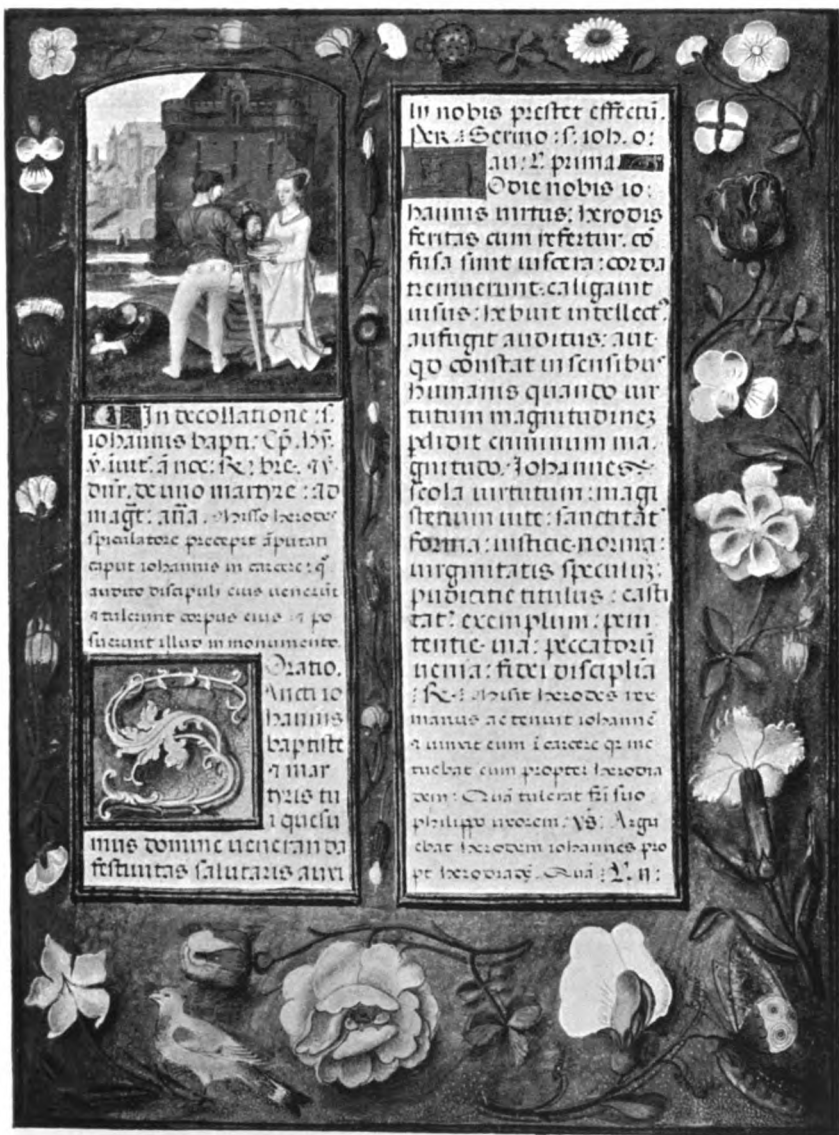 In decollatione : s.
iohannis bapti : Cp. hȳ.
dūr. de uno martyre : ad
magt̄ : aña. Misso herodes
spiculatore precepit āputari
caput iohannis in carcere : q̄
audito discipuli eius uenerūt
⁊ tulerunt corpus eius ⁊ po
suerunt illud in monumento.
Oratio.
Sancti io
hannis
baptiste
⁊ mar
tyris tu
i quesu
mus domine ueneranda
festiuitas salutaris auxi
In nobis prestet effectū.
PER : Sermo : s. ioh. o:
au : L' prima
Odie nobis io:
hannis uirtus : herodis
feritas cum refertur. cō
fusa sunt uiscera : corda
tremuerunt. caligauit
uisus : hebuit intellect⁹
aufugit auditus : aut.
qd constat in sensibus
humanis quando uir
tutum magnitudinez
pdidit criminum ma.
gnitudo. Iohannes
scola uirtutum : magi
sterium uite : sanctitat̄
forma : iusticie norma :
uirginitatis speculuz :
pudicitie titulus : casti
tat̄ exemplum : peni
tentie uia : peccatorū
uenia : fidei disciplīa
: R : Misit herodes rex
manus ac tenuit iohannē
⁊ uinxit eum ī carcere qr me
tuebat eum propter herodia
dem : Quā tulerat fr̄i suo
philippo uxorem. VS. Argu
ebat herodem iohannes pro
pt herodiadē. Quā : L'. ii :